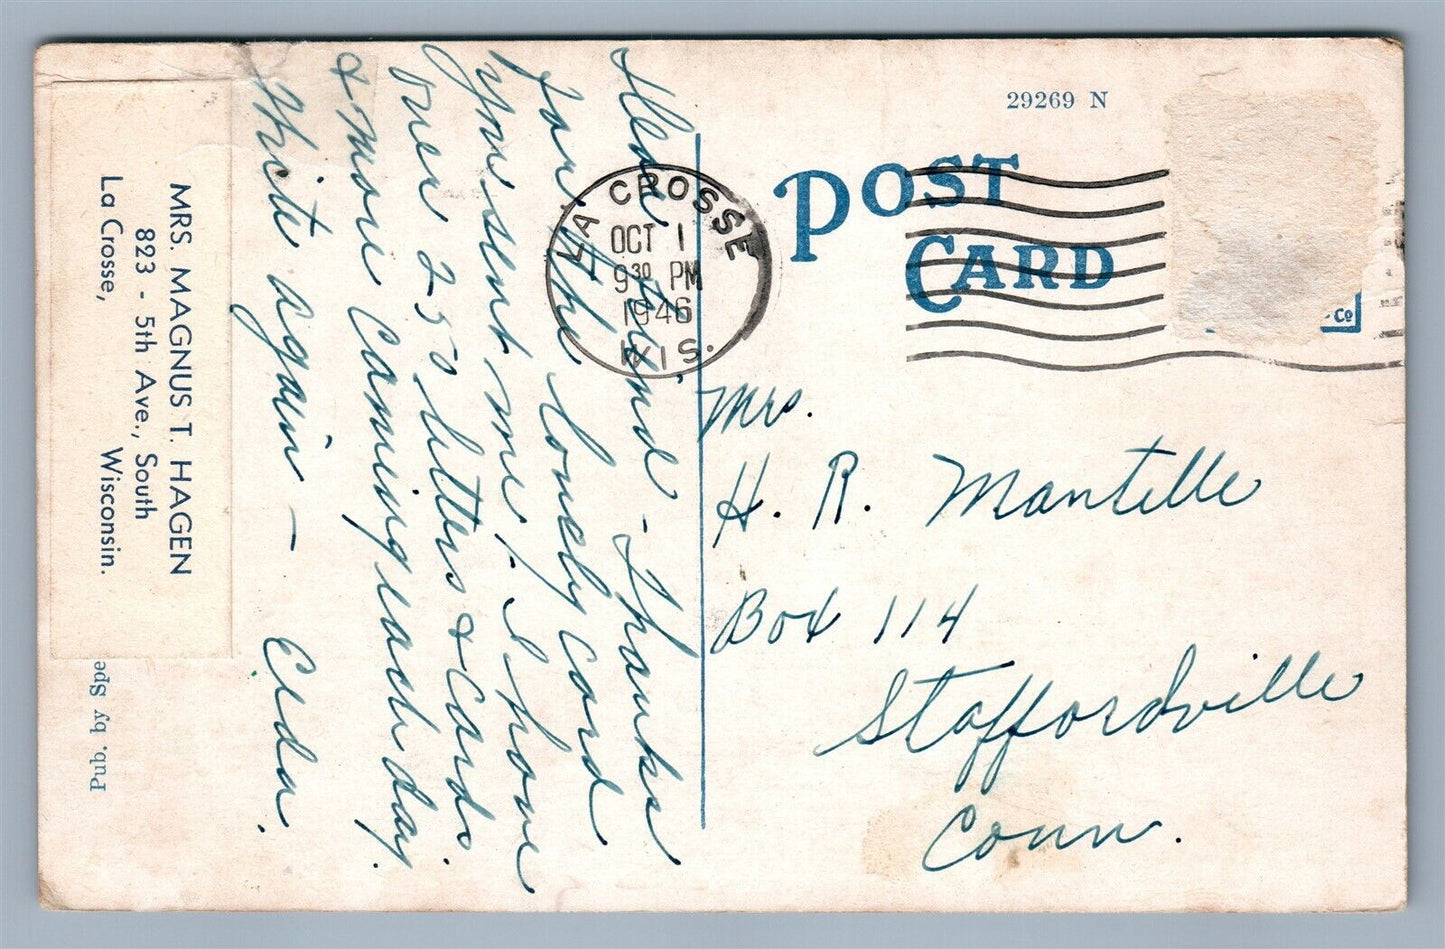 29269 N
POST
CARD
Co
LA CROSSE
OCT 1
9 30 PM
1946
WIS.
MRS. MAGNUS T. HAGEN
823 - 5th Ave., South
La Crosse, Wisconsin.
Pub. by Spe
friend - Thanks
for the lovely card
you sent me! I have
over 250 letters & cards
& more coming each day.
Write again - Elda.
Mrs.
H. R. Mantelle
Box 114
Staffordville
Conn.